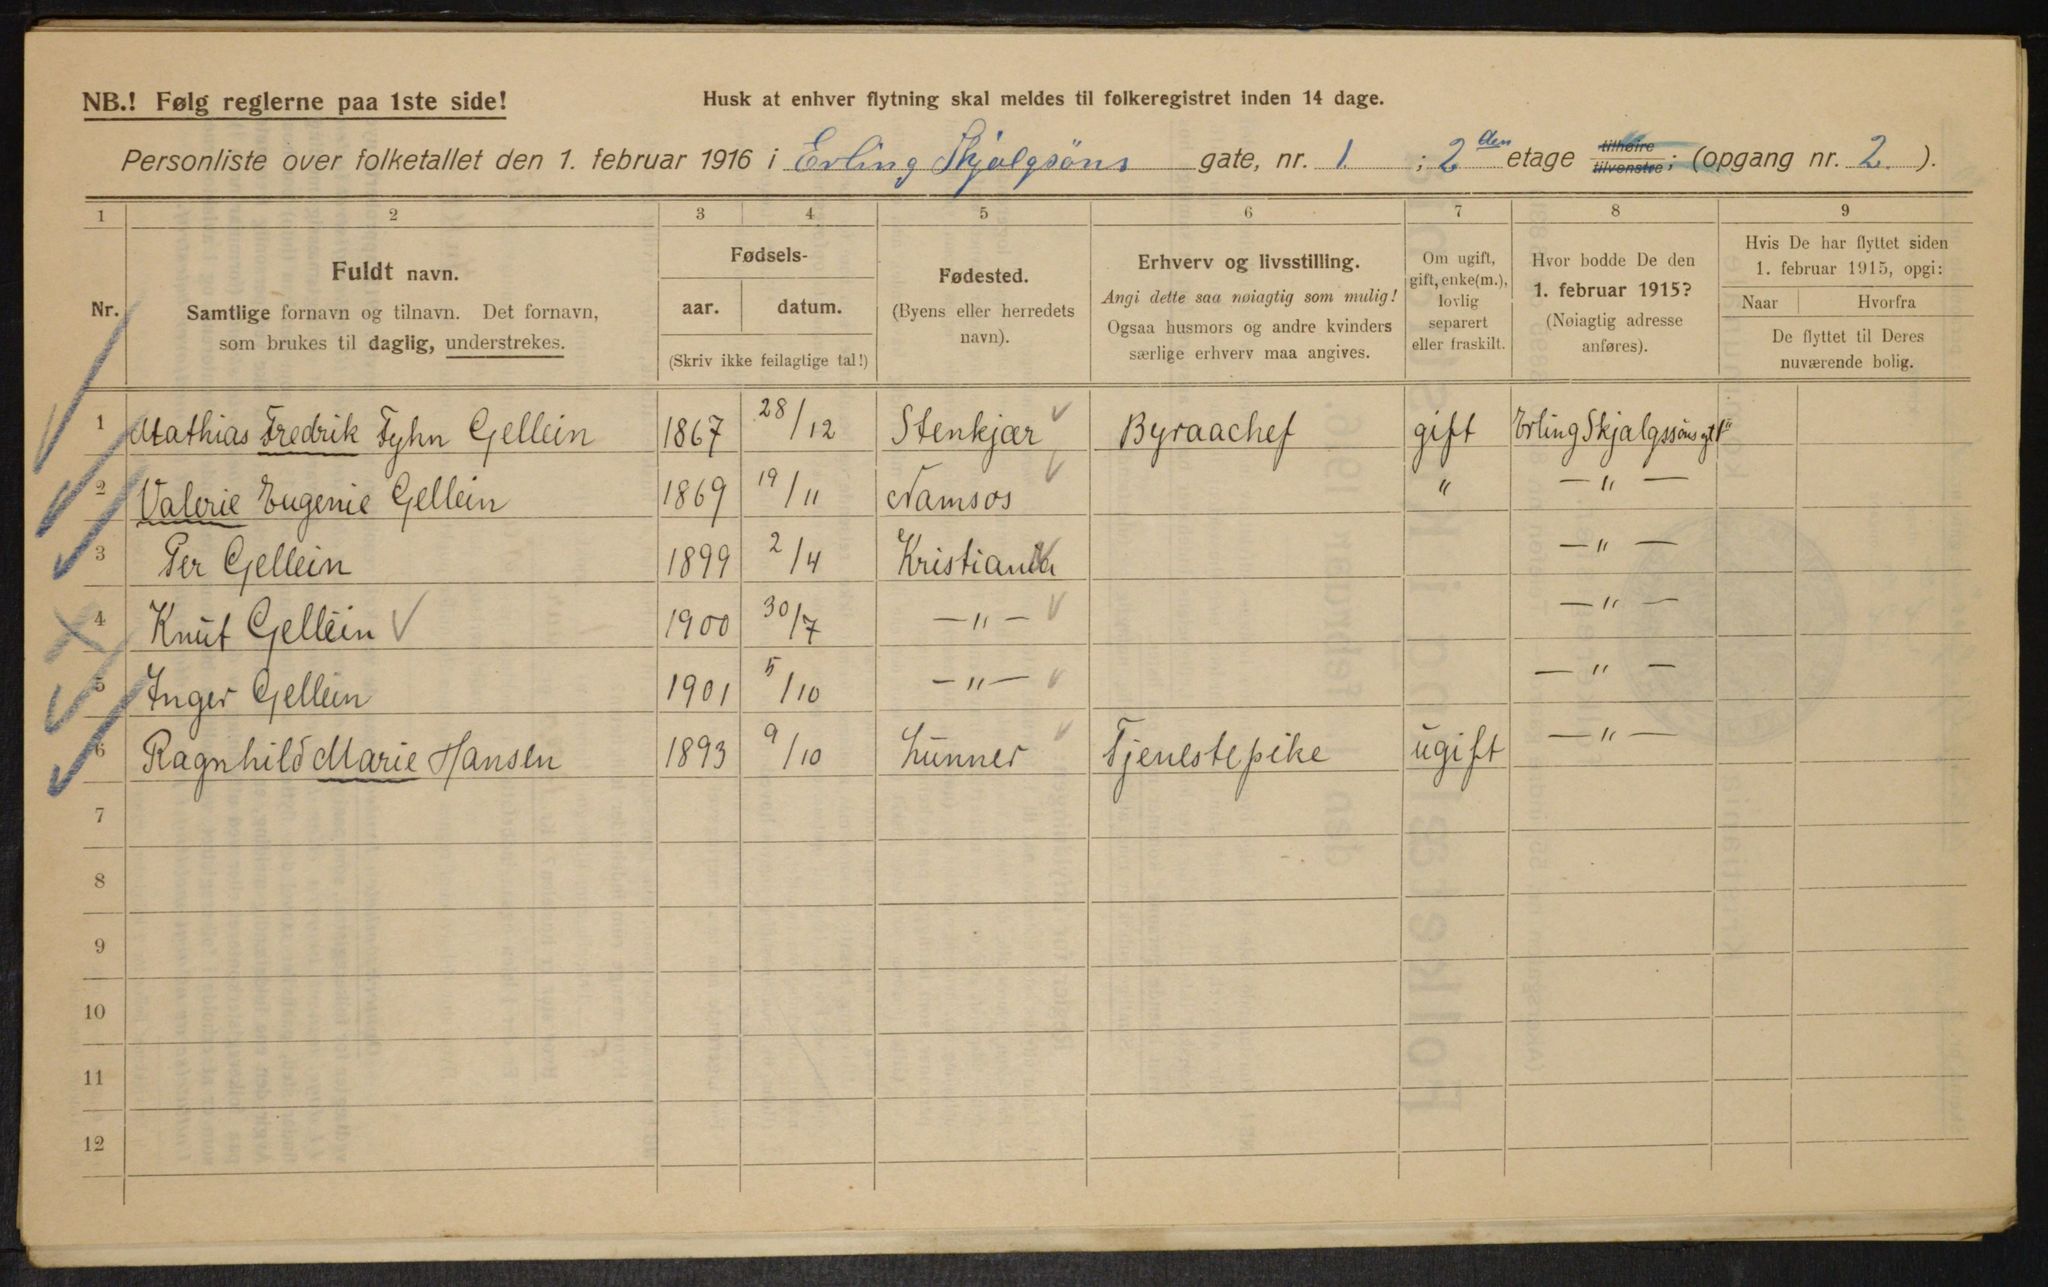 NB.! Følg reglerne paa 1ste side!
Husk at enhver flytning skal meldes til folkeregistret inden 14 dage.
Personliste over folketallet den 1. februar 1916 i Erling Skjalgsöns gate, nr. 1 ; 2den etage tilhøire tilvenstre; (opgang nr. 2. ).
1 2 3 4 5 6 7 8 9
Nr.
Fuldt navn.
Samtlige fornavn og tilnavn. Det fornavn,
som brukes til daglig, understrekes.
Fødsels-
aar. datum.
(Skriv ikke feilagtige tal!)
Fødested.
(Byens eller herredets
navn).
Erhverv og livsstilling.
Angi dette saa nøiagtig som mulig!
Ogsaa husmors og andre kvinders
særlige erhverv maa angives.
Om ugift,
gift, enke(m.),
lovlig
separert
eller fraskilt.
Hvor bodde De den
1. februar 1915?
(Nøiagtig adresse
anføres).
Hvis De har flyttet siden
1. februar 1915, opgi:
Naar Hvorfra
De flyttet til Deres
nuværende bolig.
1 Mathias Fredrik Tyhn Gellein 1867 28/12 Stenkjær Byraachef gift Erling Skjalgssöns gt 1"
2 Valerie Eugenie Gellein 1869 19/11 Namsos " — " —
3 Per Gellein 1899 2/4 Kristiania — " —
4 Knut Gellein 1900 30/7 — " — — " —
5 Inger Gellein 1901 5/10 — " — — " —
6 Ragnhild Marie Hansen 1893 9/10 Lunner Tjenestepike ugift — " —
7
8
9
10
11
12